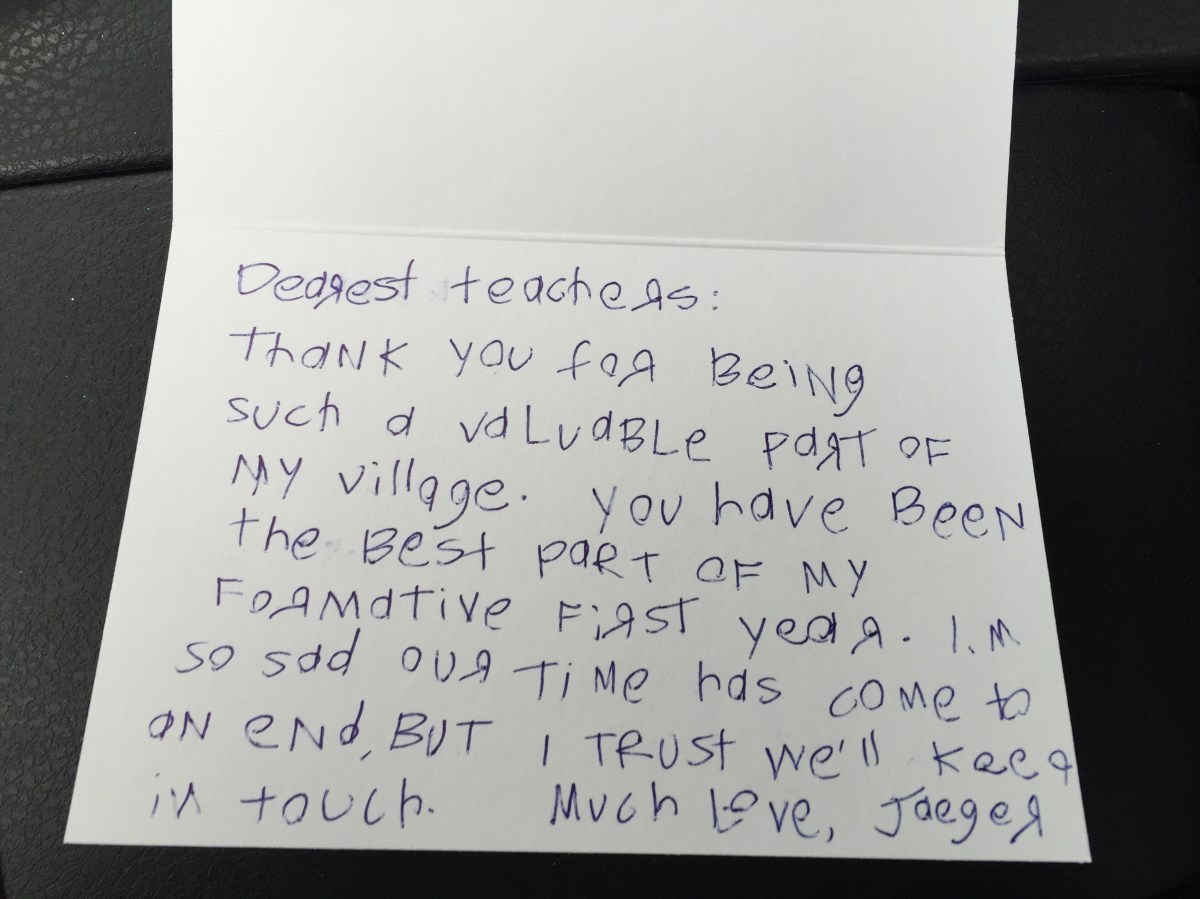 Dearest teachers:
Thank you for Being
such a valuable part of
my village. you have Been
the Best part of my
Formative First year. I.m
so sad our time has come to
an end, But I Trust we'll keep
in touch. Much love, Jaeger